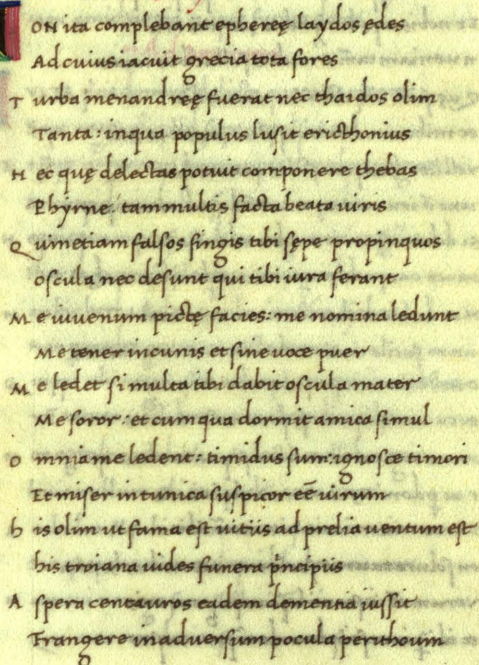 ON ita complebant epheręę laydos ędes
Ad cuius iacuit grecia tota fores
Turba menandreę fuerat nec thaidos olim
Tanta: in qua populus lusit ericthonius
Nec quę delectas potuit componere thebas
Phyrne: tam multis facta beata viris
Quin etiam falsos fingis tibi sępe propinquos
Oscula nec desunt qui tibi iura ferant
Me iuvenum pictę facies: me nomina ledunt
Me tener in cunis et sine voce puer
Me ledet si multa tibi dabit oscula mater
Me soror: et cum qua dormit amica simul
Omnia me ledent: timidus sum: ignosce timori
Et miser in tunica suspicor eē virum
his olim ut fama est vitiis ad prelia ventum est
his troiana vides funera pncipiis
Aspera centauros eadem dementia iussit
Frangere in adversum pocula perithoum